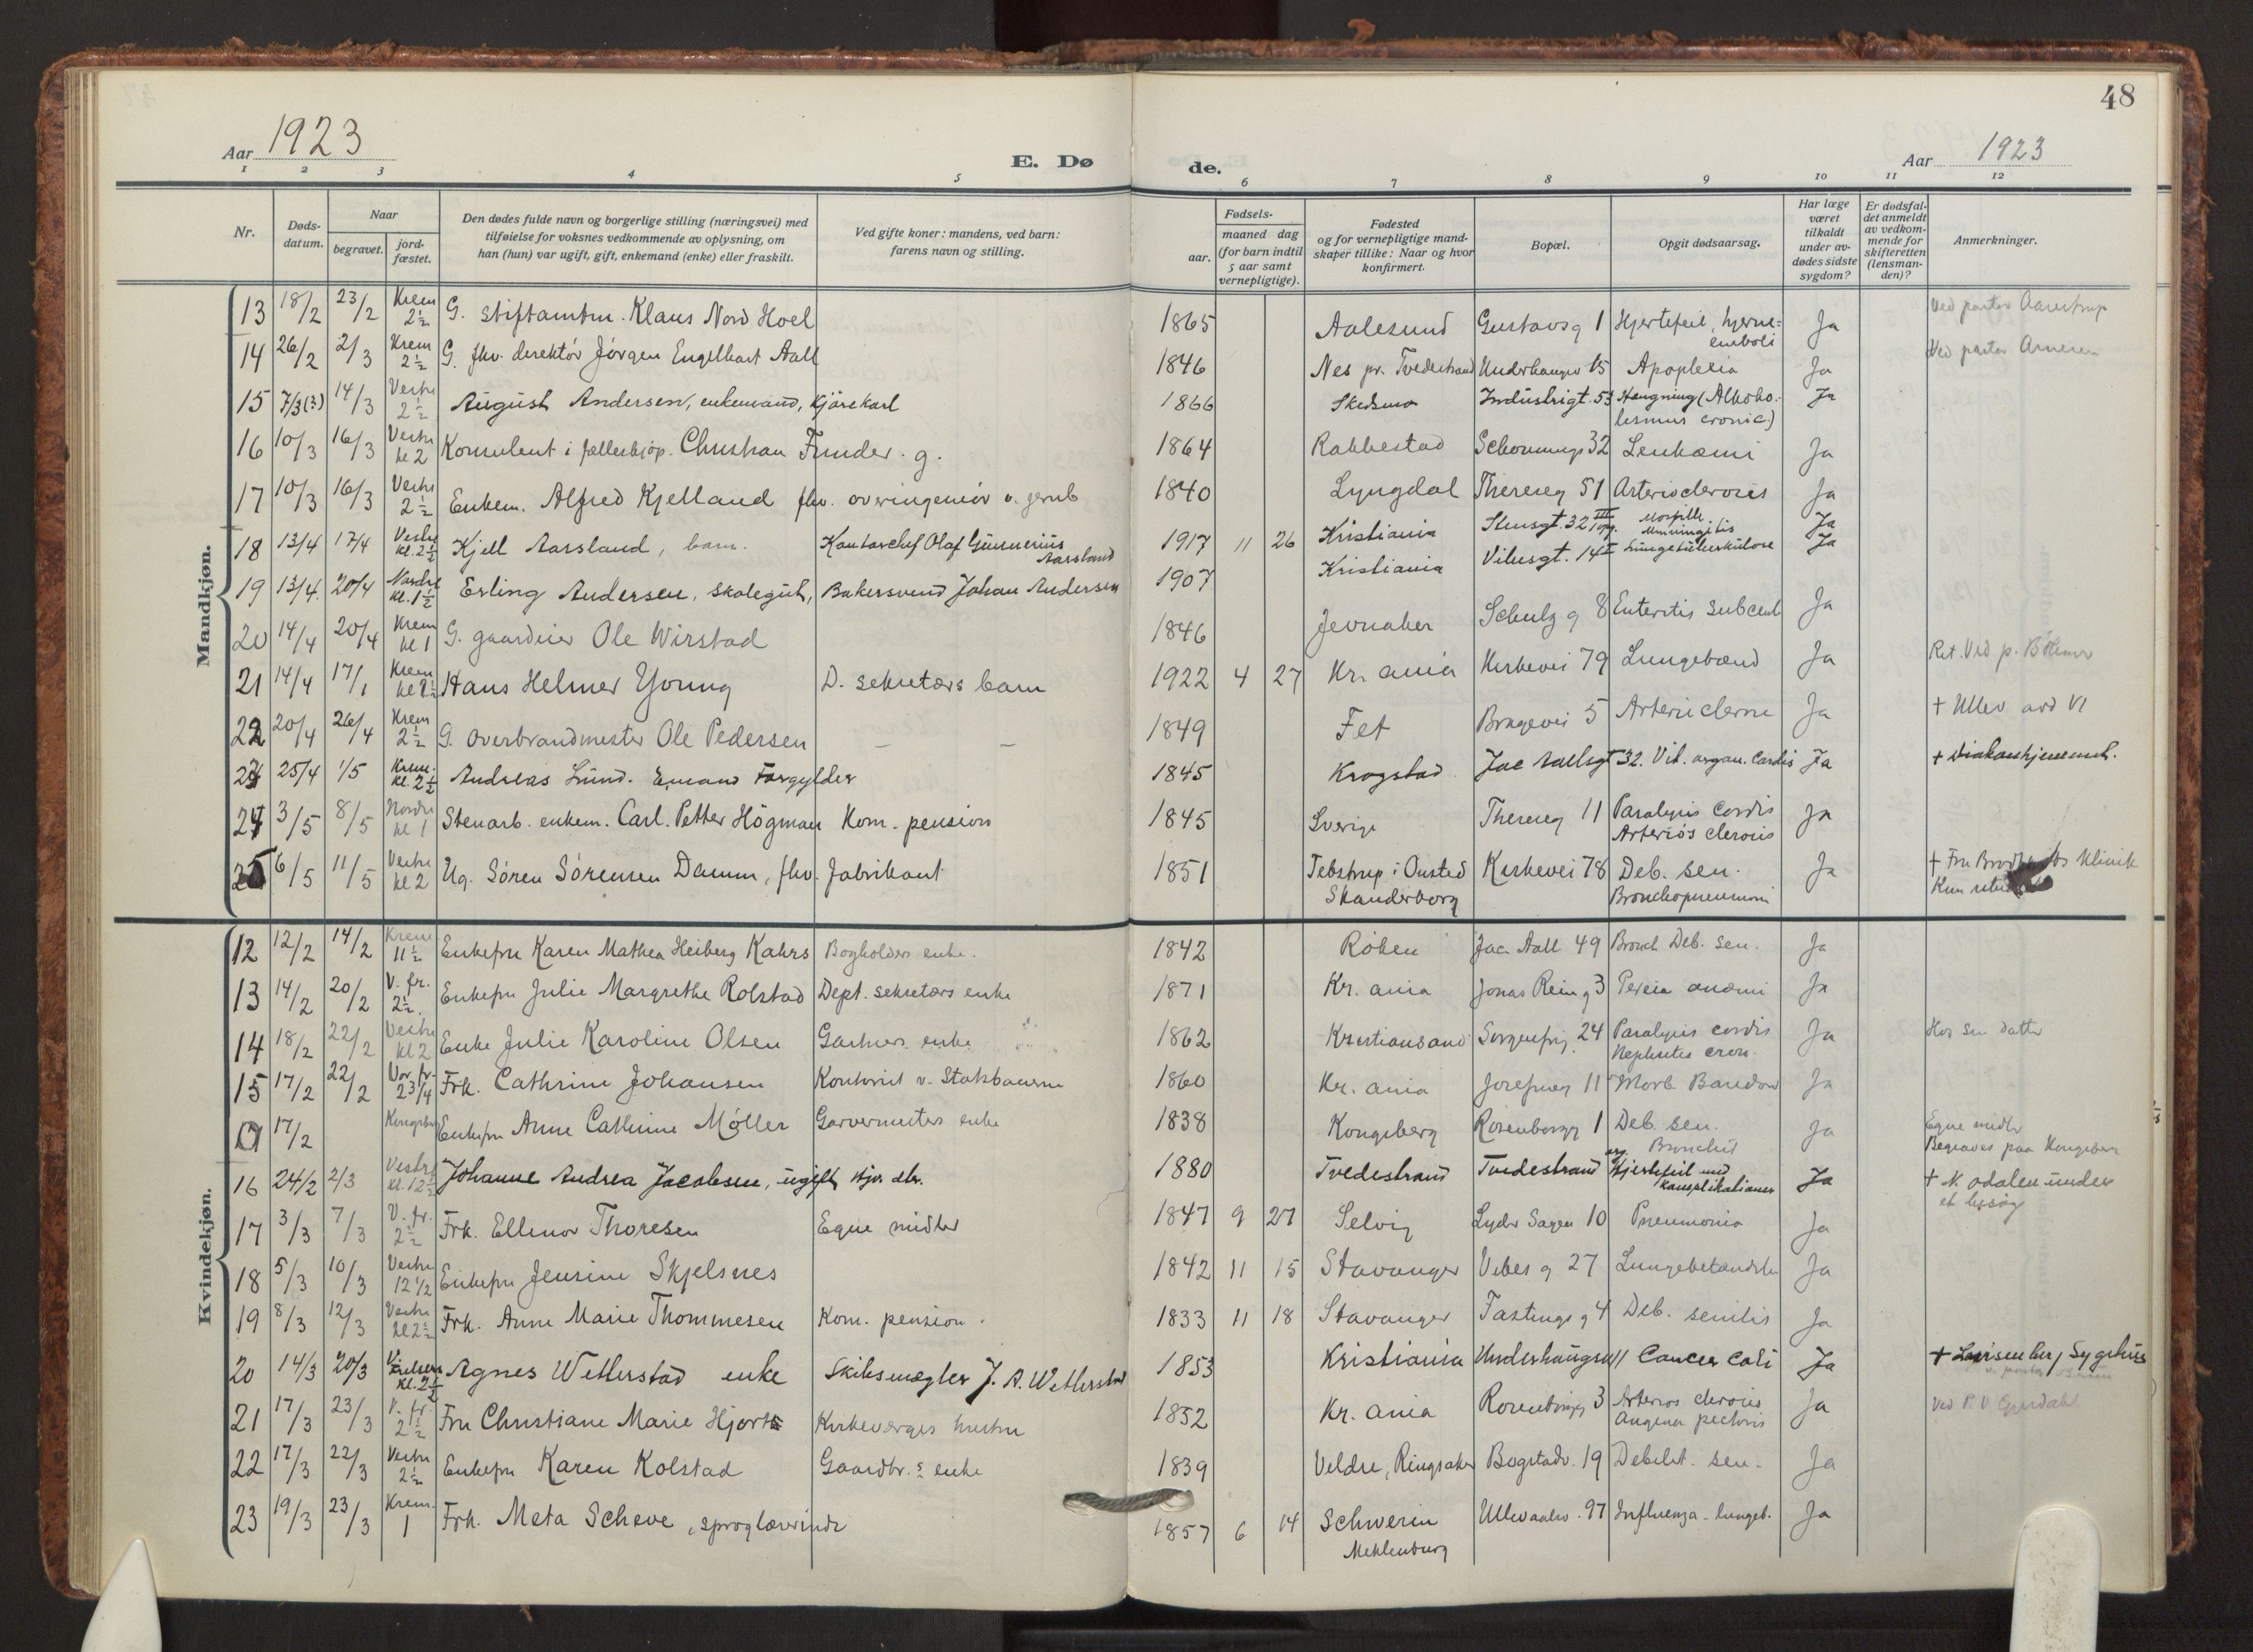 48
Aar 1923
E. Dø
de.
Aar 1923
1 2 3 4 5 6 7 8 9 10 11 12
Nr.
Døds-
datum.
Naar
begravet.
jord-
fæstet.
Den dødes fulde navn og borgerlige stilling (næringsvei) med
tilføielse for voksnes vedkommende av oplysning, om
han (hun) var ugift, gift, enkemand (enke) eller fraskilt.
Ved gifte koner: mandens, ved barn:
farens navn og stilling.
Fødsels-
aar.
maaned dag
(for barn indtil
5 aar samt
vernepligtige).
Fødested
og for vernepligtige mand-
skaper tillike: Naar og hvor
konfirmert.
Bopæl.
Opgit dødsaarsag.
Har læge
været
tilkaldt
under av-
dødes sidste
sygdom?
Er dødsfal-
det anmeldt
av vedkom-
mende for
skifteretten
(lensman-
den)?
Anmerkninger.
Mandkjøn.
13 18/2 23/2 Krem 2½ G. stiftamtm. Klaus Nord Hoel 1865 Aalesund Gustavsg 1 Hjertefeil, hjerne= Ja Ved pastor
emboli
14 26/2 2/3 Krem 2½ G. fhv. direktör Jörgen Engelhart Aall 1846 Nes pr. Tvedestrand Underhaugsv 15 Apoplexia Ja Ved pastor
15 7/3(?) 14/3 Vestre 2½ August Andersen, enkemand, kjörekarl 1866 Skedsmo Industrigt. 53 Hengning (Alkoho- Ja
lismus cronic)
16 10/3 16/3 Vestre kl 2 Konsulent i fælleskjöp. Christian Funder. g. 1864 Rakkestad Schouvengs 32 Leukæmi Ja
17 10/3 16/3 Vestre 2½ Enkem. Alfred Kjelland fhv. overingeniör v. jernb 1840 Lyngdal Theresesg 51 Arteriosclerosis Ja
18 13/4 17/4 Vestre kl. 2½ Kjell Aarsland, barn. Kontorchef Olaf Gunnerius 1917 11 26 Kristiania Stensgt. 32 III opg. Morbilli Ja
Aarsland Meningitis
19 13/4. 20/4 Nordre kl. 1½ Erling Andersen, skolegut, Bakersvend Johan Andersen 1907 Kristiania Vibesgt. 14 I Lungetuberkulose Ja
20 14/4 20/4 Krem kl 1 G. gaardeier Ole Wirstad 1846 Jevnaker Schulz g 8 Enteritis subcent Ja
21 14/4 17/1 Krem Hans Helmer Young D. sekretærs barn 1922 4 27 Kr. ania Kirkevei 79 Lungebænd Ja Ret. Ved p.
22 20/4 26/4 Krem 2½ G. overbrandmester Ole Pedersen — — 1849 Fet Bragevei 5 Ja + Ullev avd VI
23 25/4 1/5 Krem. kl. 2½ Andreas Lund. Emand Forgylder 1845 Krogstad Jac Aallsgt 32. Vit. organ. Cardis Ja + Diakonhjemmet.
24 3/5 8/5 Nordre kl 1 Stenarb. enkem. Carl. Petter Högman Kom. pension 1845 Sverige Theresesg 11 Paralysis Cordis Ja
Arteriós clerosis
25 6/5 11/5 Vestre kl 2 Ug. Sören Sörensen Damm, fhv. fabrikant 1851 Tebstrup i Ousted Kirkevei 78 Deb. sen. Ja + Fru Klinik
Skanderborg Bronchopneumoni Kun
Kvindekjøn.
12 12/2 14/2 Krem 11½ Enkefru Karen Mathea Heiberg Kahrs Bogholders enke. 1842 Röken Jac Aall 49 Bronch Deb. sen. Ja
13 14/2 20/2 V. fr. 2½. Enkefru Julie Margrethe Rolstad Dept. sekretærs enke 1871 Kr. ania Jonas Rein g 3 anæmi Ja
14 18/2 22/2 Vestre kl 2 Enke Julie Karoline Olsen Gartners enke 1862 Kristiansand Sorgenfrig. 24 Paralysis cordis Ja Hos sin datter
Nephritis cron.
15 17/2 22/2 Vor. fr. 2 3/4 Frk. Cathrine Johansen Kontorist v. Statsbanerne 1860 Kr. ania Josefinesg 11 Morb. Basedow Ja
17/2 Kongsberg Enkefru Anne Cathrine Møller Garvermesters enke 1838 Kongsberg Rosenborgg 1 Deb. sen. Ja Egne midler
Bronchit Begraves paa Kongsberg
16 24/2 2/3 Vestre kl. 12½ Johanne Andrea Jacobsen, ugift, 1880 Tvedestrand Tvedestrand org. Hjertefeil med Ja + N. Odalen under
komplikationer et besög
17 3/3 7/3 V. fr. 2½ Frk. Ellinor Thoresen Egne midler 1847 9 27 Selvig Lyder Sagen 10 Pneumonia Ja
18 5/3 10/3 Vestre 12½ Enkefru Jensine Skjelsnes 1842 11 15 Stavanger Vibes g 27 Lungebetændelse Ja
19 8/3 12/3 Vestre kl 2½ Frk. Anne Marie Thommesen Kom. pension. 1833 11 18 Stavanger Fastings g 4 Deb. senilis Ja
20 14/3 20/3 kl. 2½ Agnes Wetlerstad enke Skibsmægler J. A. Wetlerstad 1853 Kristiania Underhaugsv 11 Cancer Coli Ja + Lovisenberg Sygehus
21 17/3 23/3 V. fr. 2½ Fru Christiane Marie Hjorth Kirkeverges hustru 1852 Kr. ania Rosenborgg 3 Arterios clerosis Ja Ved P.
Angina pectoris
22 17/3 22/3 Vestre 2½ Enkefru Karen Kolstad Gaardbr.s enke 1839 Veldre, Ringsaker Bogstadv. 19 Debilit. sen. Ja
23 19/3 23/3 Krem. 1 Frk. Meta Scheve, sproglærerinde 1857 6 14 Schwerin Ullevaalsv. 97 Influenza - lungeb. Ja
Meklenburg